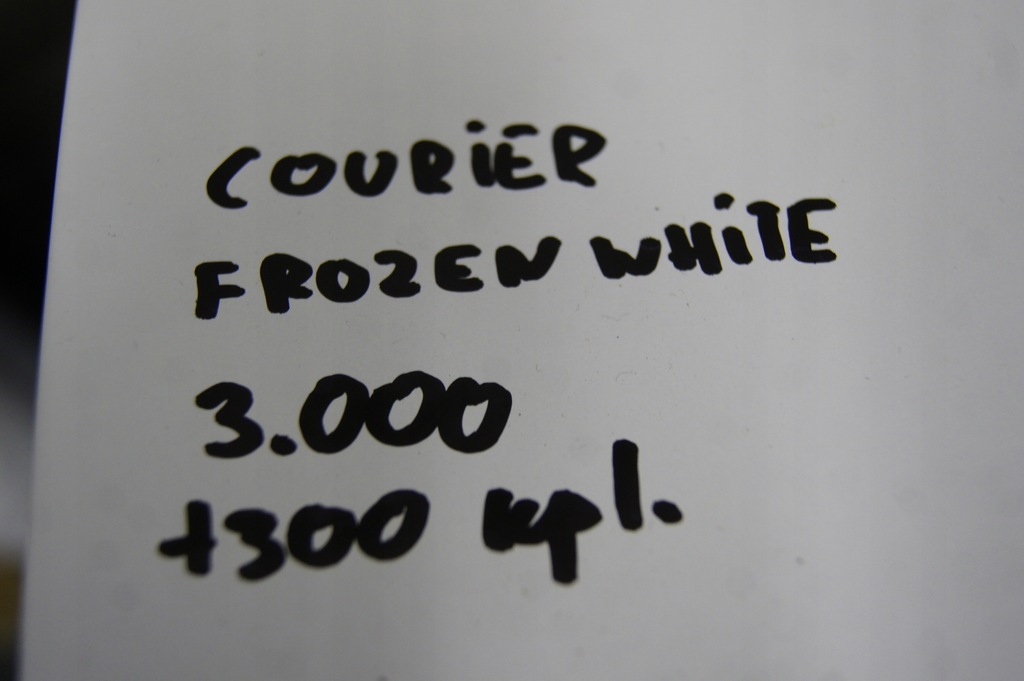 COURiER
FROZEN WHiTE
3.000
+300 kpl.